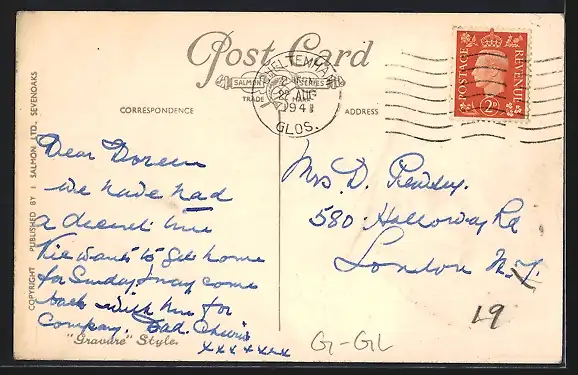 Post Card
SALMON SERIES
TRADE MARK
CHELTENHAM
AUG
194
GLOS.
POSTAGE REVENUE
2D
CORRESPONDENCE
ADDRESS
COPYRIGHT PUBLISHED BY J SALMON LTD. SEVENOAKS
Dear Doreen
we have had
a decent time
Vic wants to get home
for Sunday I may come
back with him for
Company. Dad.
xxx xxxx
"Gravure" Style.
Mrs. D.
580 Holloway Rd
London N.7.
19
G-GL